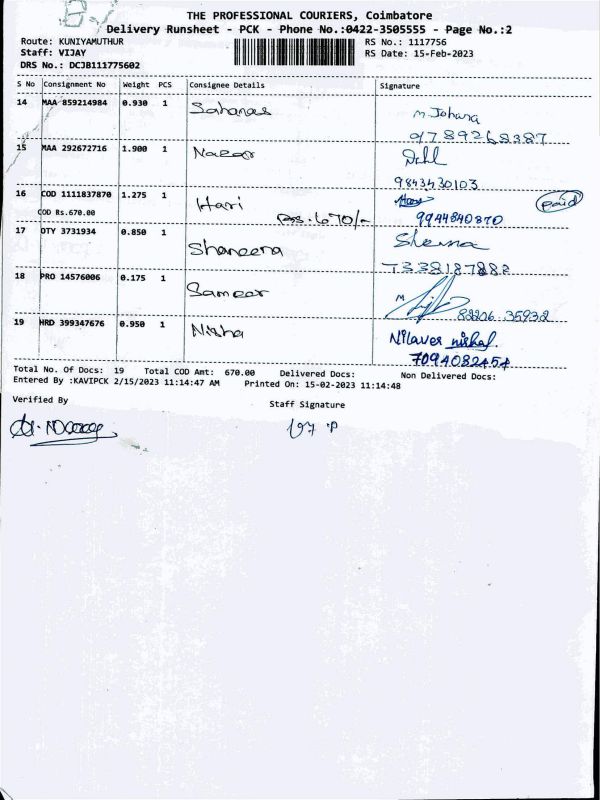 THE PROFESSIONAL COURIERS, Coimbatore
Delivery Runsheet - PCK - Phone No.:0422-3505555 - Page No.:2
Route: KUNIYAMUTHUR RS No.: 1117756
Staff: VIJAY RS Date: 15-Feb-2023
DRS No.: DCJB111775602
S No Consignment No Weight PCS Consignee Details Signature
14 MAA 859214984 0.930 1 Sahanas M. Johara
9789268387
15 MAA 292672716 1.900 1 Nazar
9843430103
16 COD 1111837870 1.275 1 Hari Hari paid
COD Rs.670.00 Rs. 670/- 9944840870
17 DTY 3731934 0.850 1 Shaneena
7338187882
18 PRO 14576006 0.175 1 Sameer
82206 35932
19 HRD 399347676 0.950 1 Nisha Nilaver nishaf.
7094082454
Total No. Of Docs: 19 Total COD Amt: 670.00 Delivered Docs: Non Delivered Docs:
Entered By :KAVIPCK 2/15/2023 11:14:47 AM Printed On: 15-02-2023 11:14:48
Verified By Staff Signature